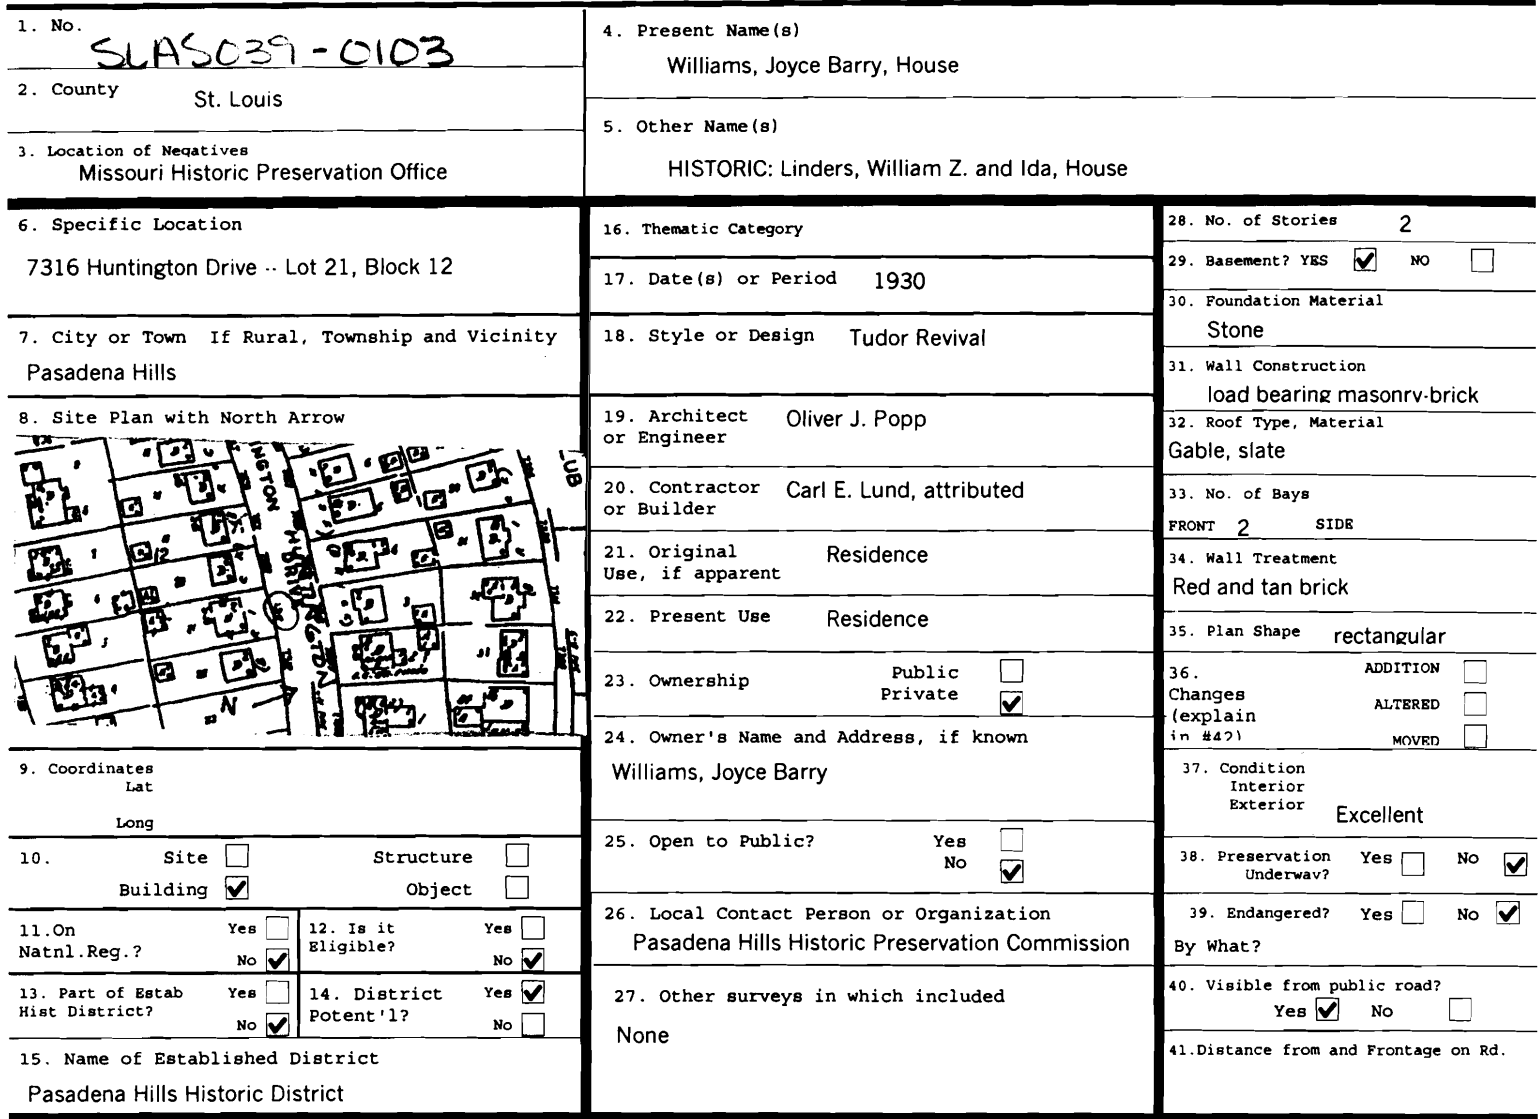 1. No.
SLAS039-0103
2. County
St. Louis
3. Location of Negatives
Missouri Historic Preservation Office
4. Present Name(s)
Williams, Joyce Barry, House
5. Other Name(s)
HISTORIC: Linders, William Z. and Ida, House
6. Specific Location
7316 Huntington Drive -- Lot 21, Block 12
7. City or Town If Rural, Township and Vicinity
Pasadena Hills
8. Site Plan with North Arrow
INGTON
LUB
12
N
9. Coordinates
Lat
Long
10. Site Structure
Building Object
11.On
Natnl.Reg.?
Yes
No
12. Is it
Eligible?
Yes
No
13. Part of Estab
Hist District?
Yes
No
14. District
Potent'l?
Yes
No
15. Name of Established District
Pasadena Hills Historic District
16. Thematic Category
17. Date(s) or Period 1930
18. Style or Design Tudor Revival
19. Architect
or Engineer
Oliver J. Popp
20. Contractor
or Builder
Carl E. Lund, attributed
21. Original
Use, if apparent
Residence
22. Present Use Residence
23. Ownership
Public
Private
24. Owner's Name and Address, if known
Williams, Joyce Barry
25. Open to Public?
Yes
No
26. Local Contact Person or Organization
Pasadena Hills Historic Preservation Commission
27. Other surveys in which included
None
28. No. of Stories 2
29. Basement? YES NO
30. Foundation Material
Stone
31. Wall Construction
load bearing masonry-brick
32. Roof Type, Material
Gable, slate
33. No. of Bays
FRONT 2 SIDE
34. Wall Treatment
Red and tan brick
35. Plan Shape rectangular
36.
Changes
(explain
in #42)
ADDITION
ALTERED
MOVED
37. Condition
Interior
Exterior
Excellent
38. Preservation
Underway?
Yes No
39. Endangered? Yes No
By What?
40. Visible from public road?
Yes No
41.Distance from and Frontage on Rd.